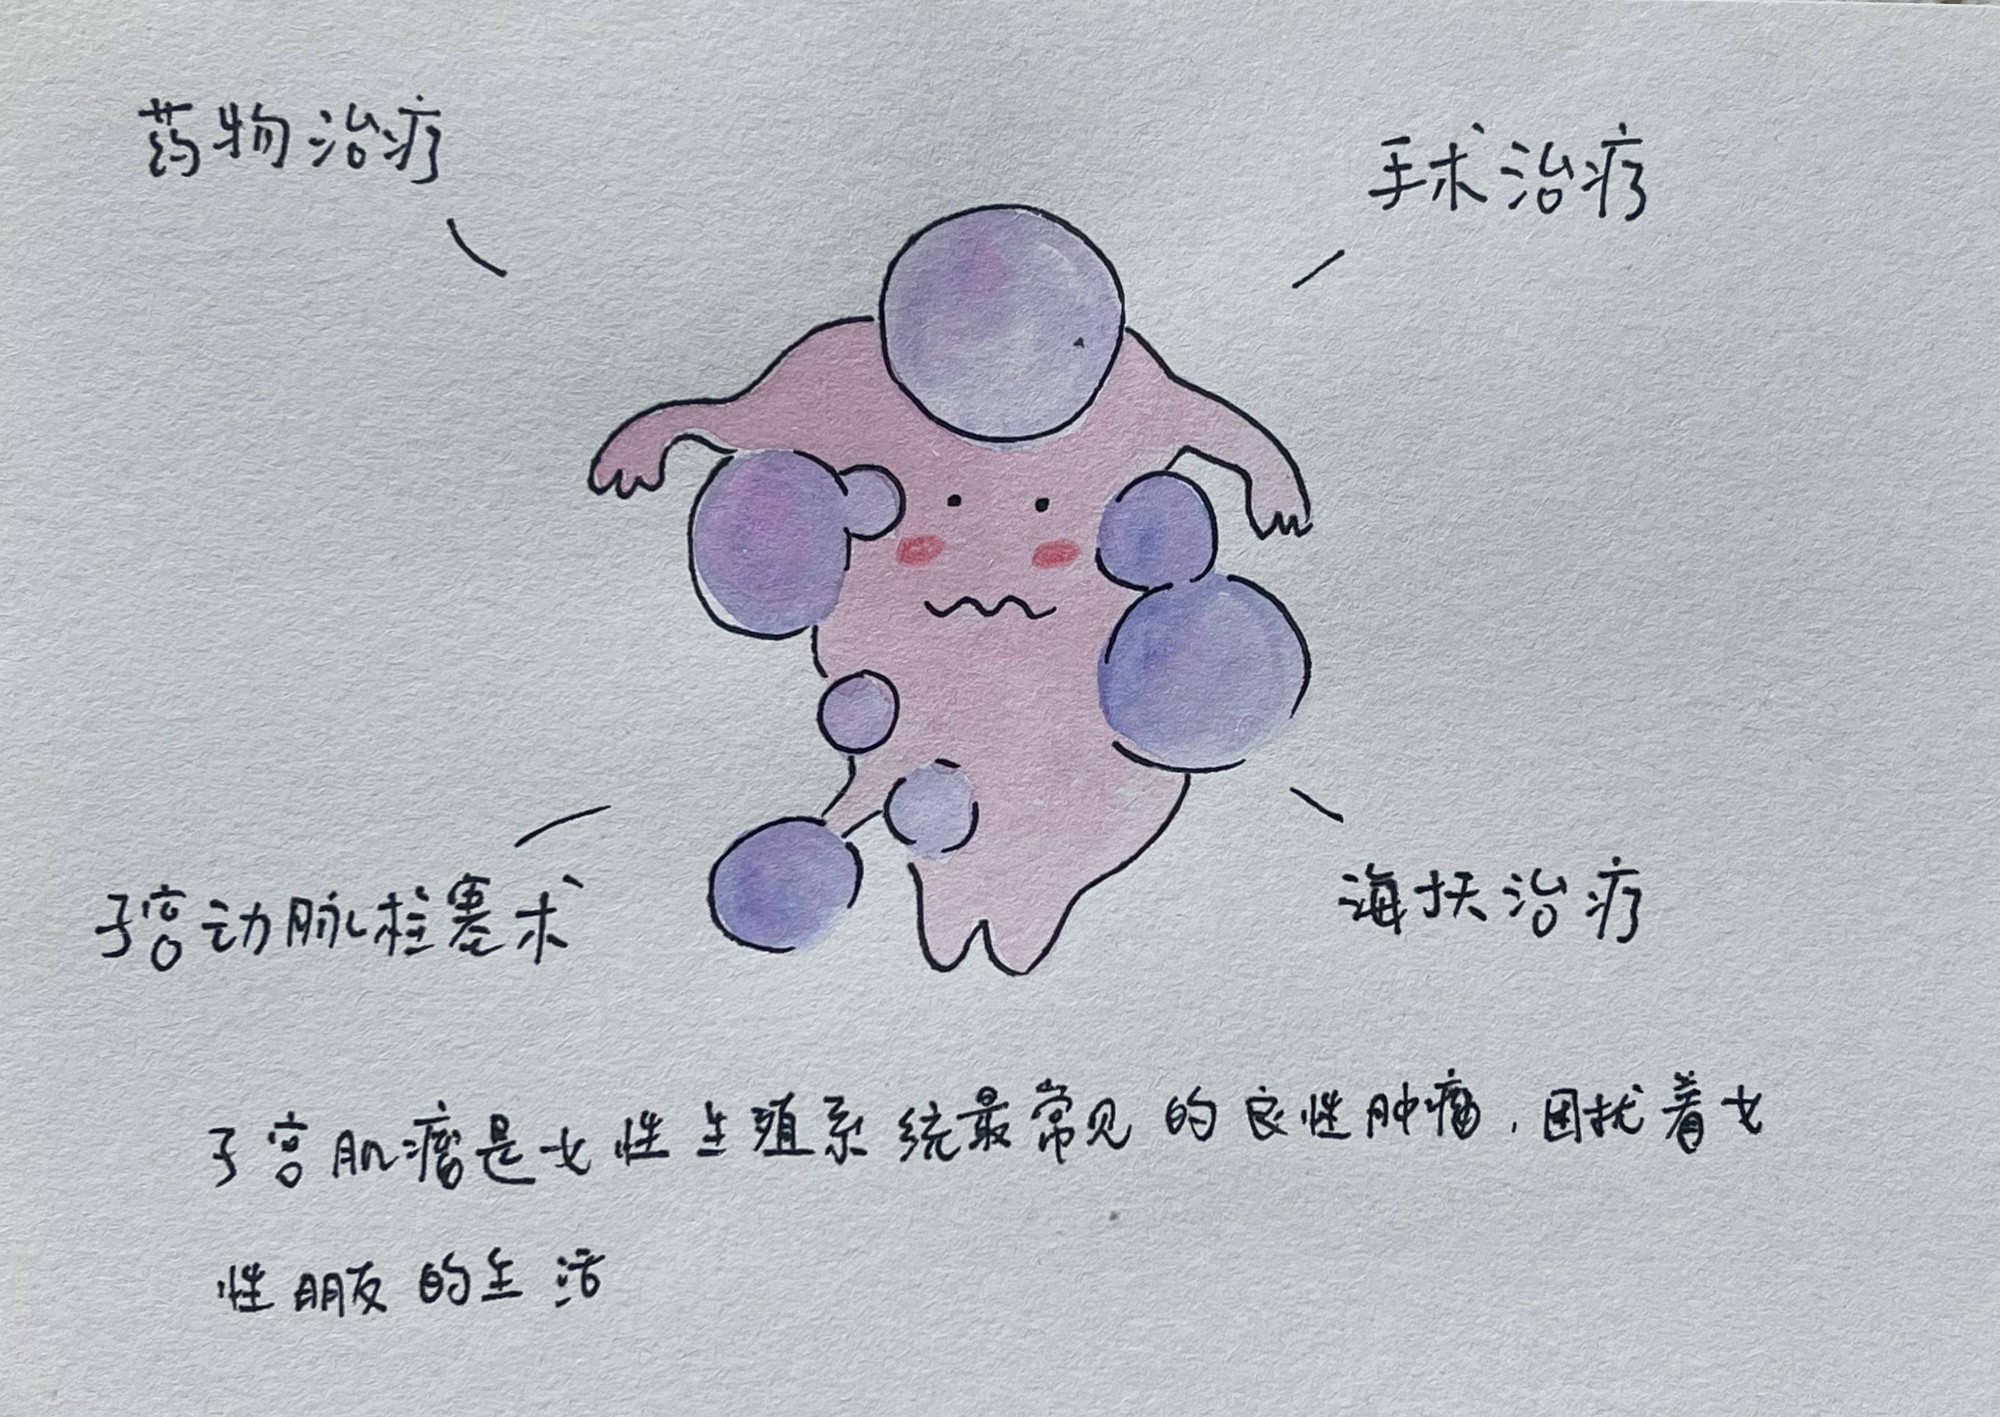 药物治疗
手术治疗
子宫动脉栓塞术
海扶治疗
子宫肌瘤是女性生殖系统最常见的良性肿瘤，困扰着女
性朋友的生活